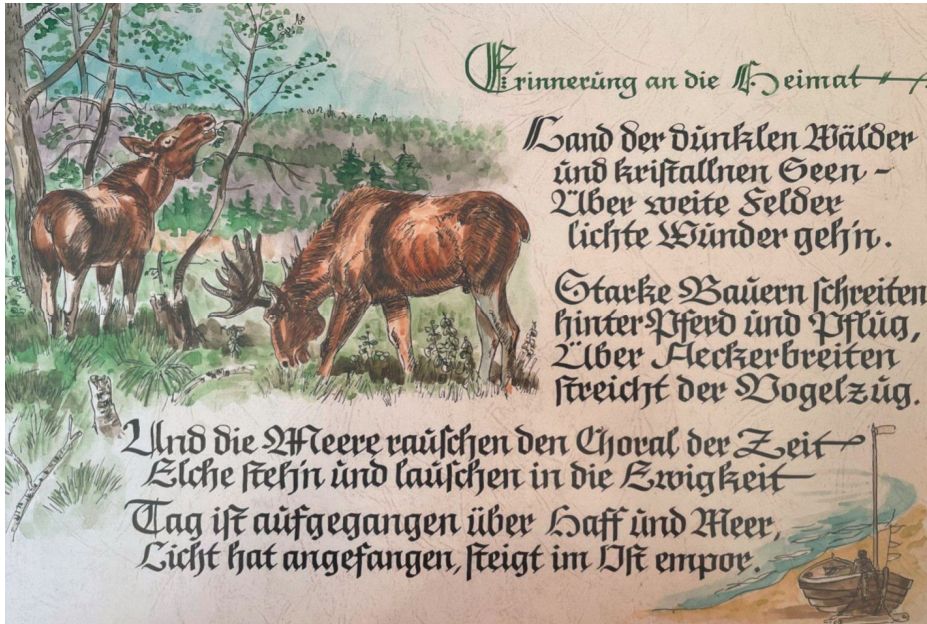 Erinnerung an die Heimat
Land der dunklen Wälder
und kristallnen Seen -
Über weite Felder
lichte Wunder geh'n.
Starke Bauern schreiten
hinter Pferd und Pflug,
Über Aeckerbreiten
streicht der Vogelzug.
Und die Meere rauschen den Choral der Zeit
Elche steh'n und lauschen in die Ewigkeit
Tag ist aufgegangen über Haff und Meer,
Licht hat angefangen, steigt im Ost empor.